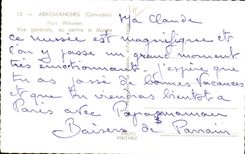 12 — ARROMANCHES (Calvados)
Port Winston
Vue générale, au centre le Musée
Claude
ce musée est magnifique et
l'on y passe un grand moment
très émotionnant. J'espère que
tu as passé de bonnes vacances
et que tu viendras bientôt à
Paris avec Papa maman
Baisers de Parrain
PHOTO
VERITABLE